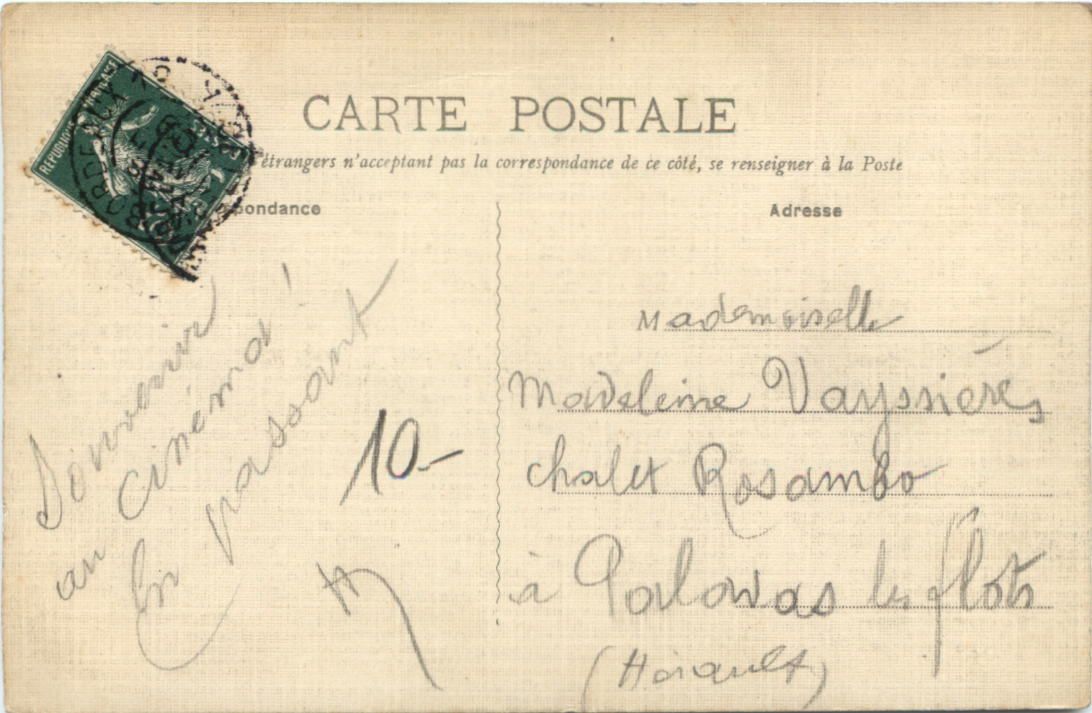 RÉPUBLIQUE FRANÇAISE
BORDEAUX
CARTE POSTALE
étrangers n'acceptant pas la correspondance de ce côté, se renseigner à la Poste
pondance
Adresse
Souvenir
au Cinéma !
En passant
10-
Mademoiselle
Madeleine Vayssières
chalet Rosambo
à Palavas les flots
(Hérault)